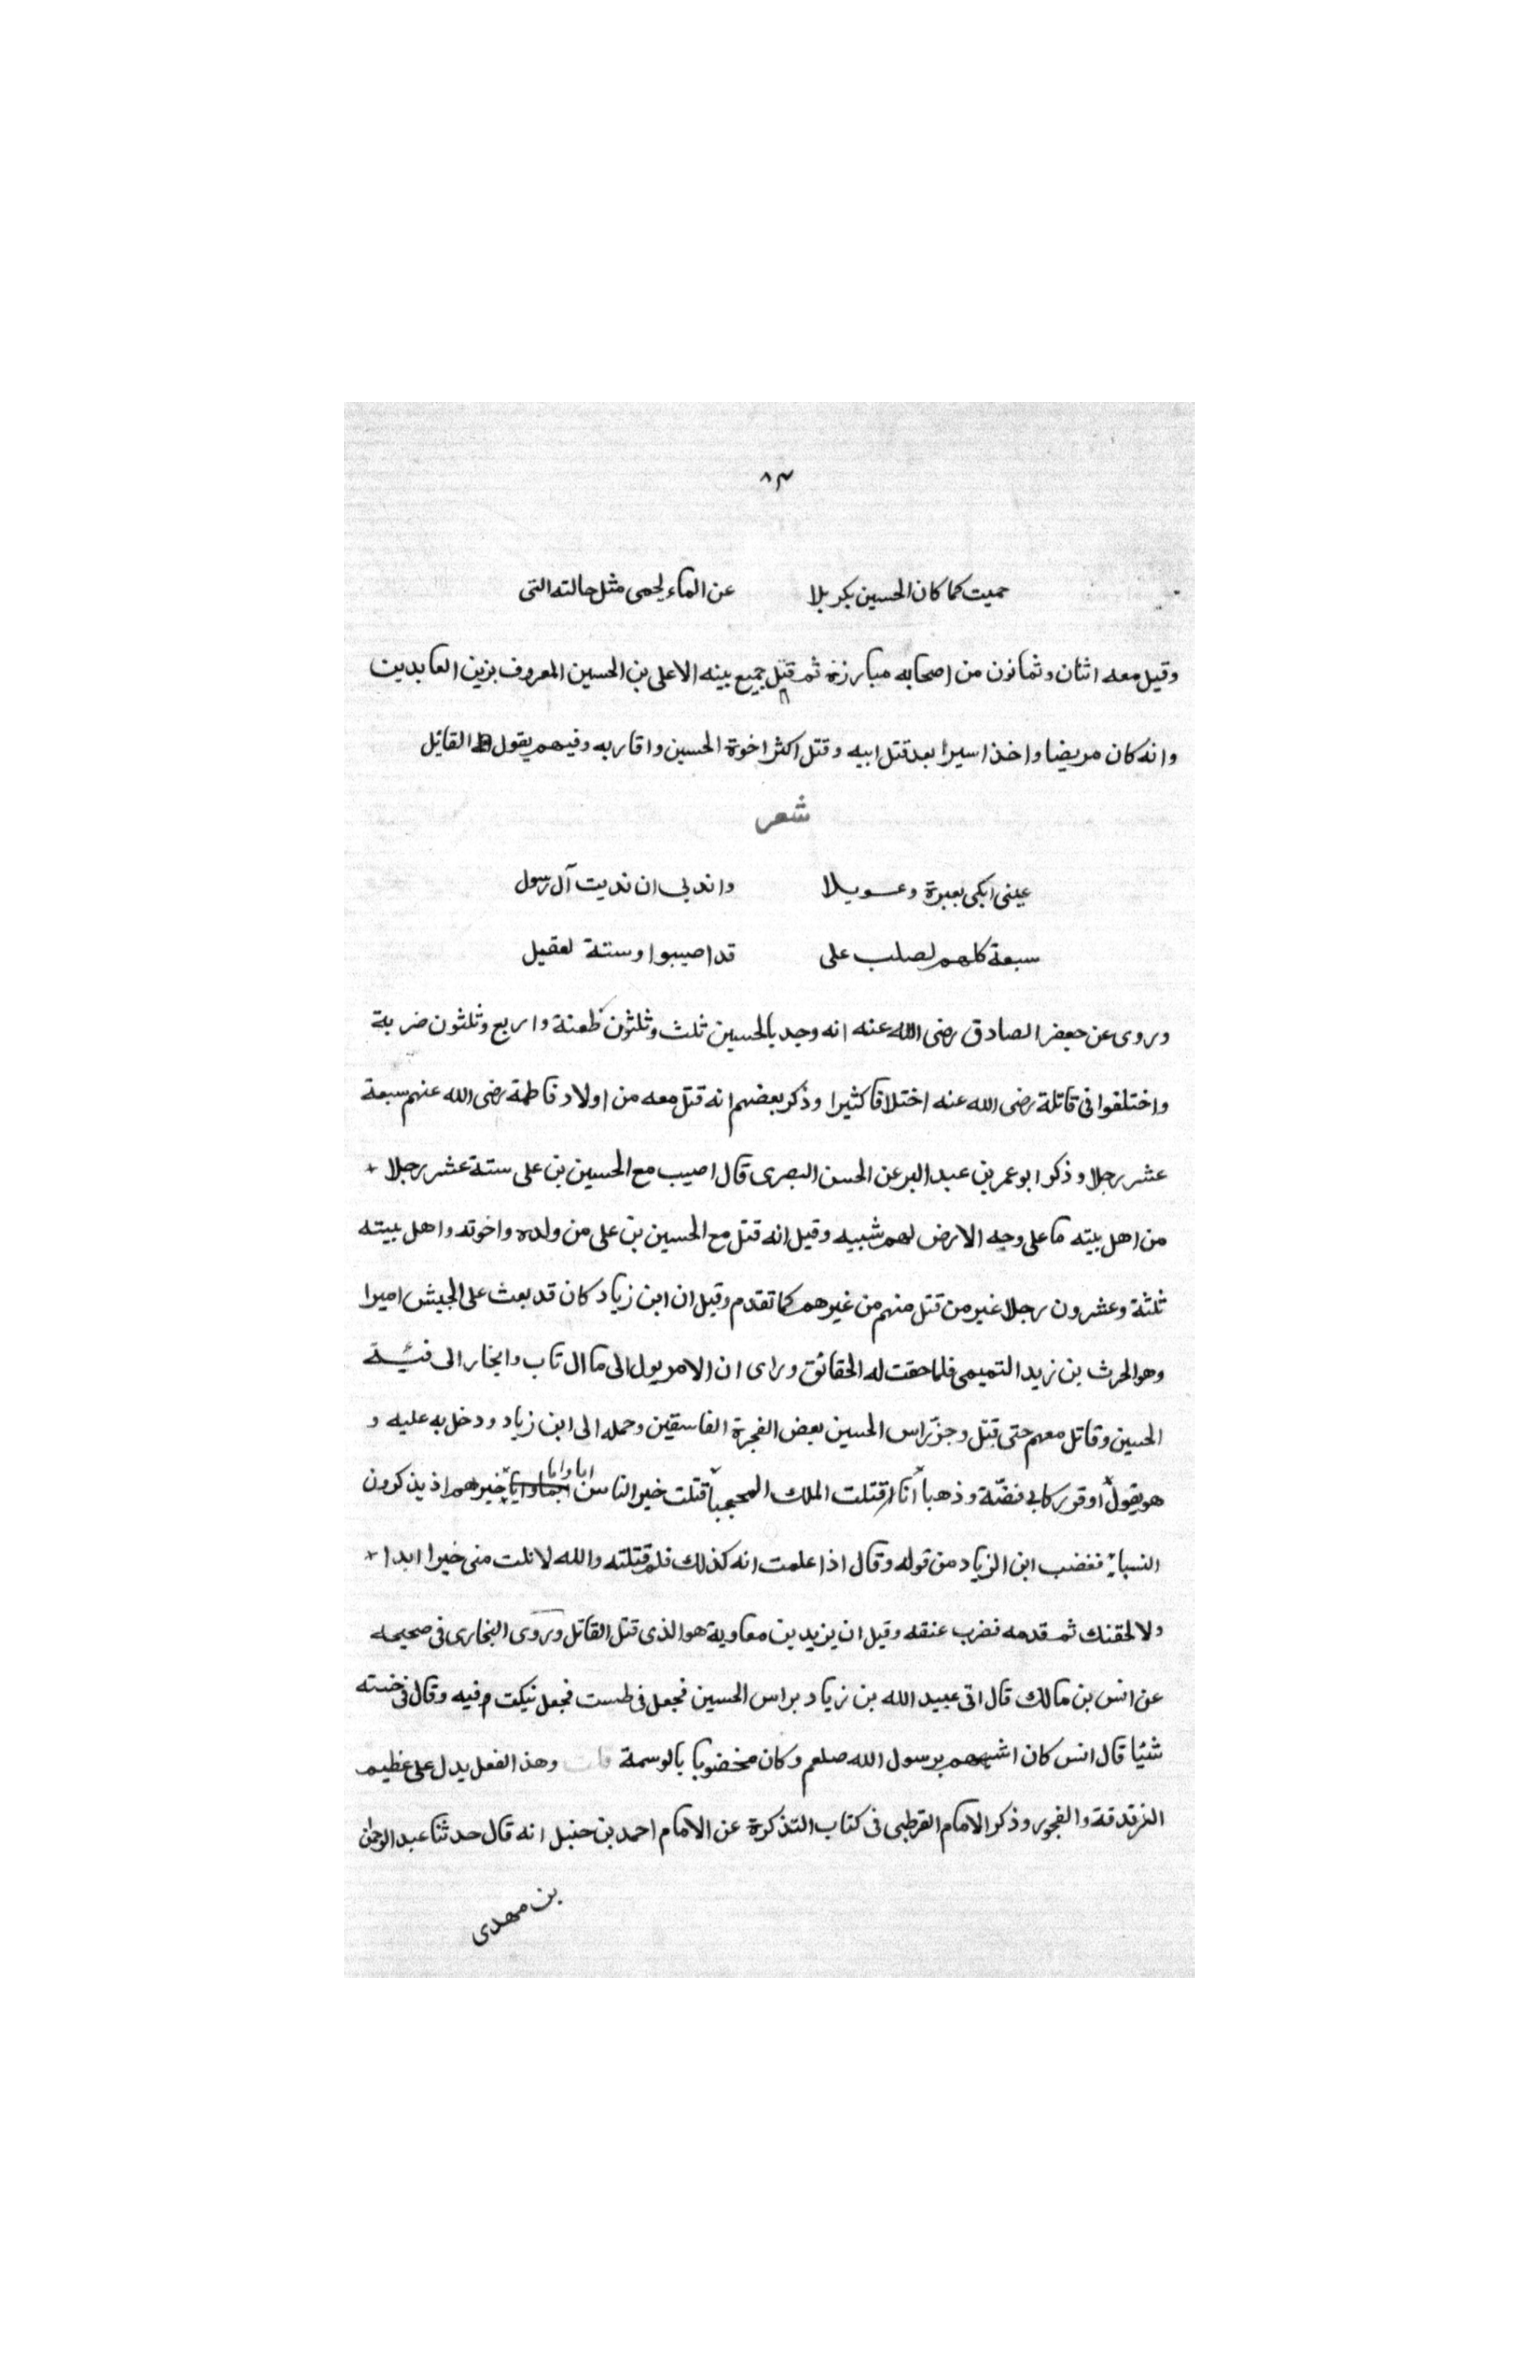 ٨٣
حميت كما كان الحسين بكربلا عن الماء لحمى مثل حالته التى
وقيل معه اثنان وثمانون من اصحابه مبارزة ثم قتل جميع بينه الا على بن الحسين المعروف بزين العابدين
وانه كان مريضا واخذ اسيرا بعد قتل ابيه وقتل اكثر اخوة الحسين واقاربه وفيهم يقول القائل
شعر
عينى ابكى بعبرة وعويلا واندبى ان نديت آل رسول
سبعة كلهم لصلب على قد اصيبوا وستة لعقيل
وروى عن جعفر الصادق رضى الله عنه انه وجد بالحسين ثلث وثلثون طعنة واربع وثلثون ضربة
واختلفوا فى قاتلة رضى الله عنه اختلافا كثيرا وذكر بعضهم انه قتل معه من اولاد فاطمة رضى الله عنهم سبعة
عشر رجلا وذكر ابو عمر بن عبد البر عن الحسن البصرى قال اصيب مع الحسين بن على ستة عشر رجلا
من اهل بيته ما على وجه الارض لهم شبيه وقيل انه قتل مع الحسين بن على من ولده واخوته واهل بيته
ثلثة وعشرون رجلا غير من قتل منهم من غيرهم كما تقدم وقيل ان ابن زياد كان قد بعث على الجيش اميرا
وهو الحرث بن زيد التميمى فلما حقت له الحقائق وراى ان الامر يول الى ما ال تاب وانحاز الى فئة
الحسين وقاتل معهم حتى قتل وجز راس الحسين بعض الفجرة الفاسقين وحمله الى ابن زياد ودخل به عليه و
هو يقول اوقر ركابى فضة وذهبا انا قتلت الملك المحجبا قتلت خير الناس اما وابا خيرهم اذ يذكرون
النسبا فغضب ابن الزياد من قوله وقال اذا علمت انه كذلك فلم قتلته والله لانلت منى خيرا ابدا
ولالحقنك ثم قدمه فضرب عنقه وقيل ان يزيد بن معاوية هو الذى قتل القاتل وروى البخارى فى صحيحه
عن انس بن مالك قال اتى عبيد الله بن زياد براس الحسين فجعل فى طست فجعل نيكت فيه وقال فى حسنه
شيئا قال انس كان اشبههم برسول الله صلعم وكان مخضوبا بالوسمة وهذا الفعل يدل على عظيم
الزندقة والفجور وذكر الامام القرطبى فى كتاب التذكرة عن الامام احمد بن حنبل انه قال حدثنا عبد الرحمن
بن مهدى